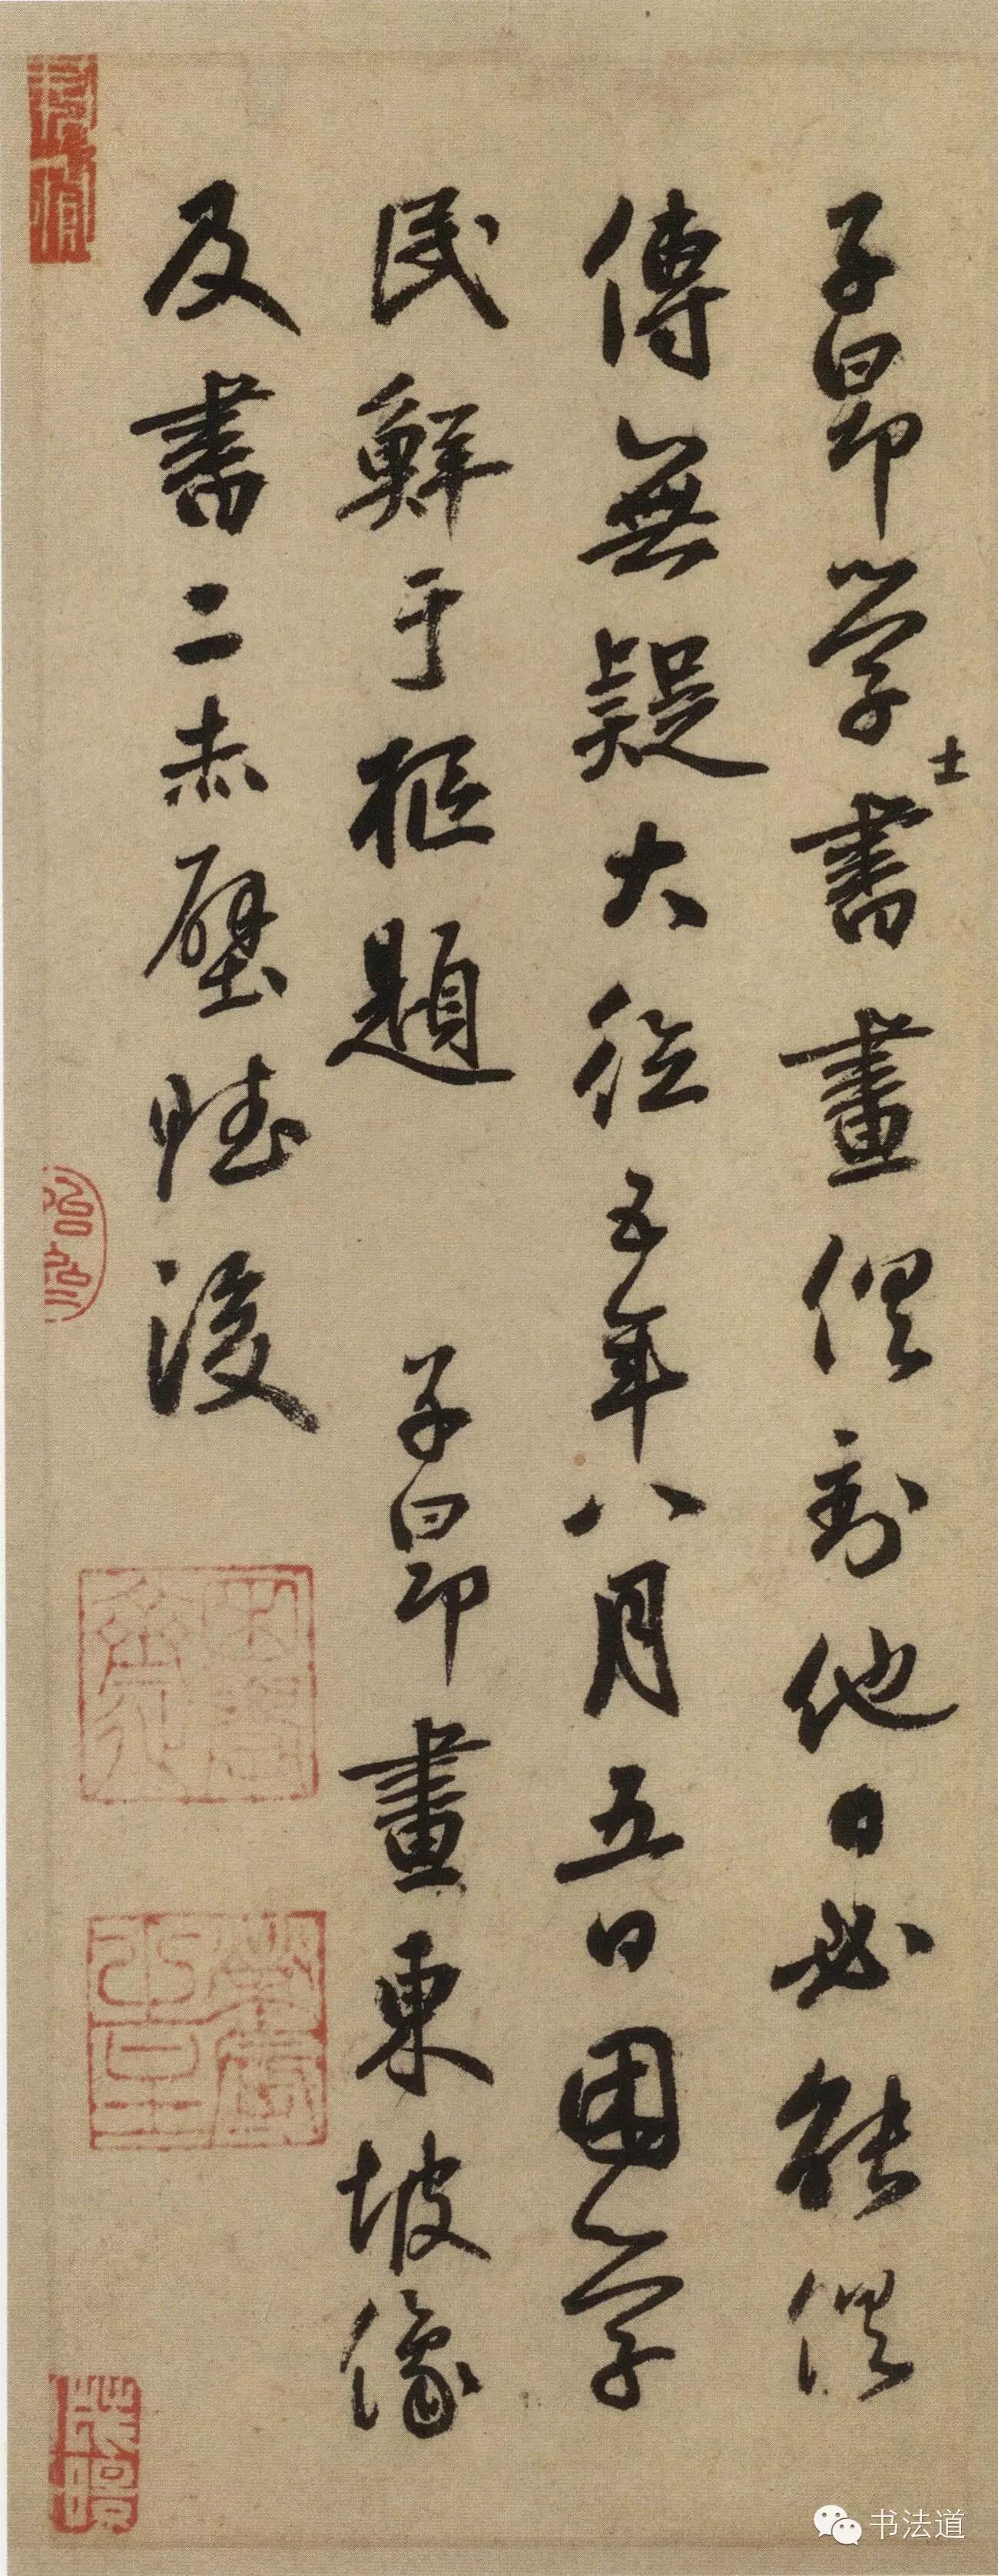 子昂学士書畫俱到他日必能俱
傳無疑大德五年八月五日困学
民鮮于樞題 子昂畫東坡像
及書二赤壁賦後
书法道